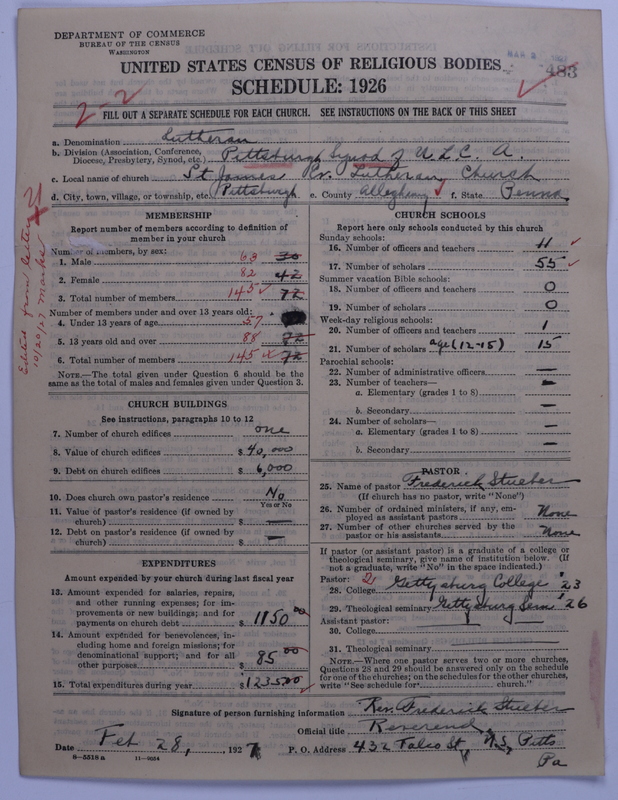 DEPARTMENT OF COMMERCE
BUREAU OF THE CENSUS
WASHINGTON
UNITED STATES CENSUS OF RELIGIOUS BODIES
483
SCHEDULE: 1926
2-2
FILL OUT A SEPARATE SCHEDULE FOR EACH CHURCH. SEE INSTRUCTIONS ON THE BACK OF THIS SHEET
a. Denomination Lutheran
b. Division (Association, Conference, Diocese, Presbytery, Synod, etc.) Pittsburgh Synod of U.L.C.A.
c. Local name of church St James Ev. Lutheran Church
d. City, town, village, or township, etc. Pittsburgh e. County Allegheny f. State Penna.
Edited from letter
10/20/27
MEMBERSHIP
Report number of members according to definition of member in your church
Number of members, by sex:
1. Male 63 30
2. Female 82 42
3. Total number of members 145 72
Number of members under and over 13 years old:
4. Under 13 years of age 57
5. 13 years old and over 88 72
6. Total number of members 145 72
NOTE.—The total given under Question 6 should be the same as the total of males and females given under Question 3.
CHURCH BUILDINGS
See instructions, paragraphs 10 to 12
7. Number of church edifices one
8. Value of church edifices $40,000
9. Debt on church edifices $6,000
10. Does church own pastor's residence No
Yes or No
11. Value of pastor's residence (if owned by church) $ —
12. Debt on pastor's residence (if owned by church) $ —
EXPENDITURES
Amount expended by your church during last fiscal year
13. Amount expended for salaries, repairs, and other running expenses; for improvements or new buildings; and for payments on church debt $1150 00
14. Amount expended for benevolences, including home and foreign missions; for denominational support; and for all other purposes $85 00
15. Total expenditures during year $1235 00
CHURCH SCHOOLS
Report here only schools conducted by this church
Sunday schools:
16. Number of officers and teachers 11
17. Number of scholars 55
Summer vacation Bible schools:
18. Number of officers and teachers 0
19. Number of scholars 0
Week-day religious schools:
20. Number of officers and teachers 1
21. Number of scholars age (12-15) 15
Parochial schools:
22. Number of administrative officers —
23. Number of teachers— —
a. Elementary (grades 1 to 8)
b. Secondary —
24. Number of scholars—
a. Elementary (grades 1 to 8) —
b. Secondary —
PASTOR
25. Name of pastor Frederick Stueber
(If church has no pastor, write "None")
26. Number of ordained ministers, if any, employed as assistant pastors None
27. Number of other churches served by the pastor or his assistants None
If pastor (or assistant pastor) is a graduate of a college or theological seminary, give name of institution below. (If not a graduate, write "No" in the space indicated.)
Pastor: 21
28. College Gettysburg College '23
29. Theological seminary Gettysburg Sem '26
Assistant pastor:
30. College
31. Theological seminary
NOTE.—Where one pastor serves two or more churches, Questions 28 and 29 should be answered only on the schedule for one of the churches; on the schedules for the other churches, write "See schedule for church."
Signature of person furnishing information Rev. Frederick Stueber
Official title Reverend
Date Feb 28, 1927 P. O. Address 432 Talco St, N.S. Pitts
Pa
8-5518 a 11-9054